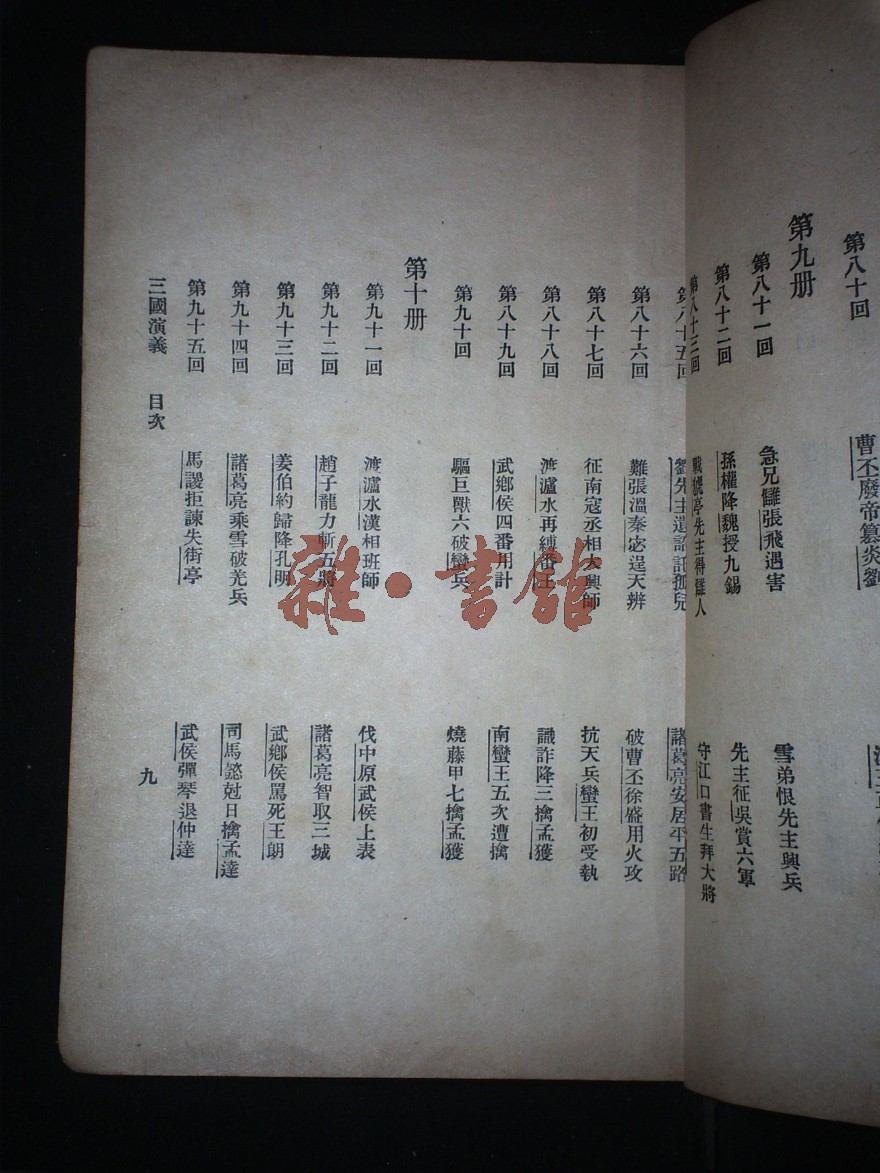 第八十回 曹丕廢帝篡炎劉
第九册
第八十一回 急兄讎張飛遇害 雪弟恨先主興兵
第八十二回 孫權降魏授九錫 先主征吳賞六軍
第八十三回 戰猇亭先主得讎人 守江口書生拜大將
第八十五回 劉先主遺詔託孤兒 諸葛亮安居平五路
第八十六回 難張溫秦宓逞天辨 破曹丕徐盛用火攻
第八十七回 征南寇丞相大興師 抗天兵蠻王初受執
第八十八回 渡瀘水再縛番王 識詐降三擒孟獲
第八十九回 武鄉侯四番用計 南蠻王五次遭擒
第九十回 驅巨獸六破蠻兵 燒藤甲七擒孟獲
第十册
第九十一回 渡瀘水漢相班師 伐中原武侯上表
第九十二回 趙子龍力斬五將 諸葛亮智取三城
第九十三回 姜伯約歸降孔明 武鄉侯罵死王朗
第九十四回 諸葛亮乘雪破羌兵 司馬懿尅日擒孟達
第九十五回 馬謖拒諫失街亭 武侯彈琴退仲達
三國演義 目次 九
雜·書館